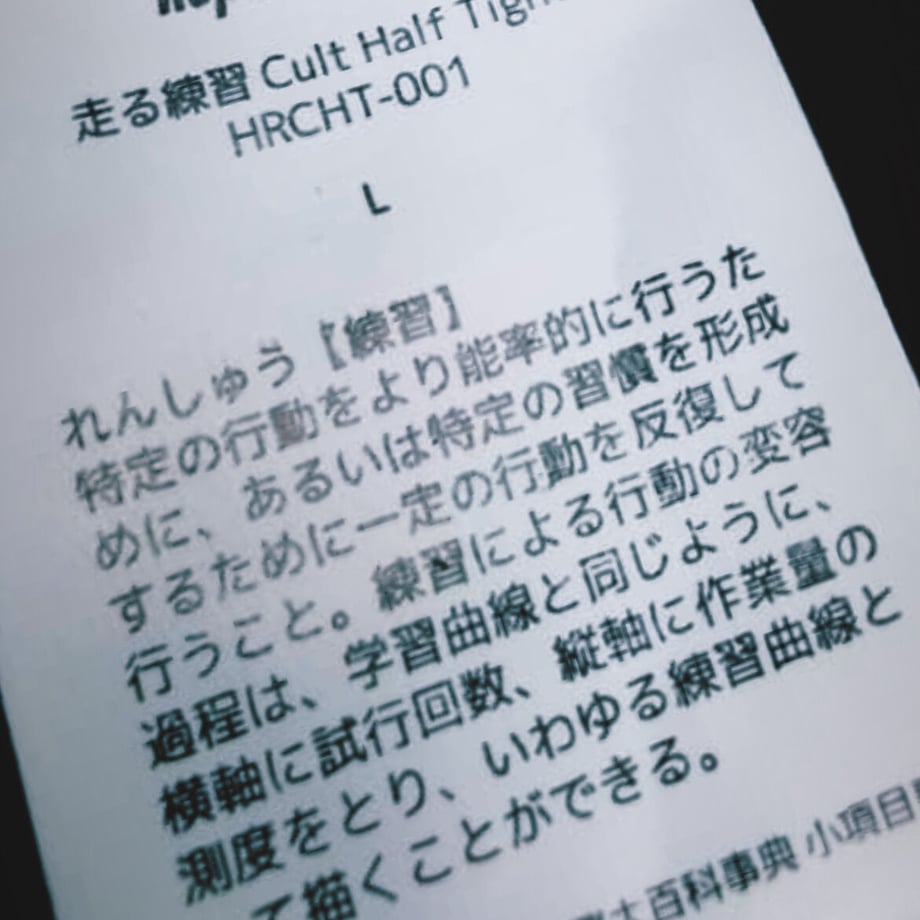 走る練習 Cult Half Tight
HRCHT-001
L
れんしゅう【練習】
特定の行動をより能率的に行うた
めに、あるいは特定の習慣を形成
するために一定の行動を反復して
行うこと。練習による行動の変容
過程は、学習曲線と同じように、
横軸に試行回数、縦軸に作業量の
測度をとり、いわゆる練習曲線と
て描くことができる。
大百科事典 小項目